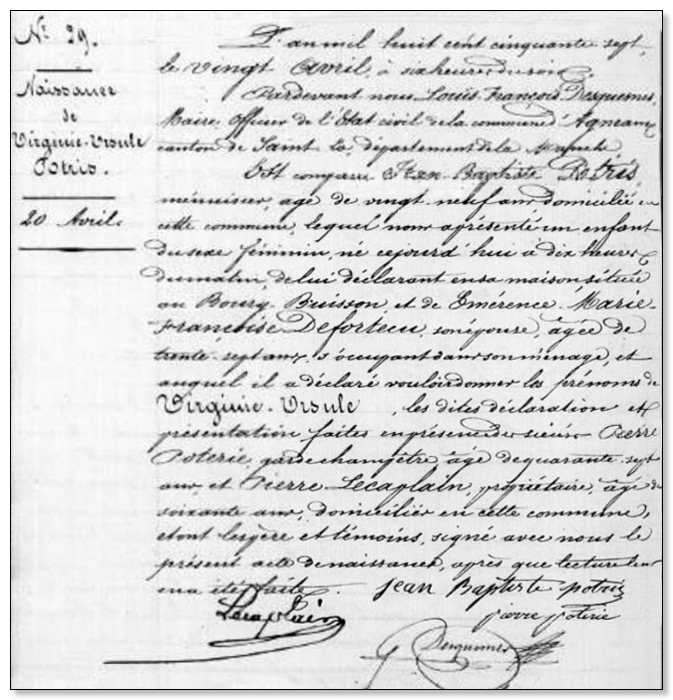 N° 29.
Naissance
de
Virginie-Ursule
Potris.
20 Avril.
L'an mil huit cent cinquante sept,
le vingt Avril, à six heures du soir,
Pardevant nous Louis François Desquesnes,
Maire officier de l'état civil de la commune d'Agneaux
canton de Saint Lo, département de la Manche
Est comparu Jean Baptiste Potris
menuisier, âgé de vingt neuf ans domicilié en
cette commune, lequel nous a présenté un enfant
du sexe féminin, né cejourd'hui à dix heures
du matin, de lui déclarant en sa maison située
au Bourg-Buisson et de Emérence-Marie-
Françoise Defortecu, son épouse, âgée de
trente-sept ans, s'occupant dans son ménage, et
auquel il a déclaré vouloir donner les prénoms de
Virginie-Ursule, les dites déclaration et
présentation faites en présence des sieurs Pierre
Poterie, garde champêtre âgé de quarante-sept
ans, et Pierre Lecaplain, propriétaire, âgé de
soixante ans, domiciliés en cette commune,
et ont les père et témoins, signé avec nous le
présent acte de naissance, après que lecture leur
en a été faite.
Jean Baptiste potris
Lecaplain
pierre poterie
Desquesnes